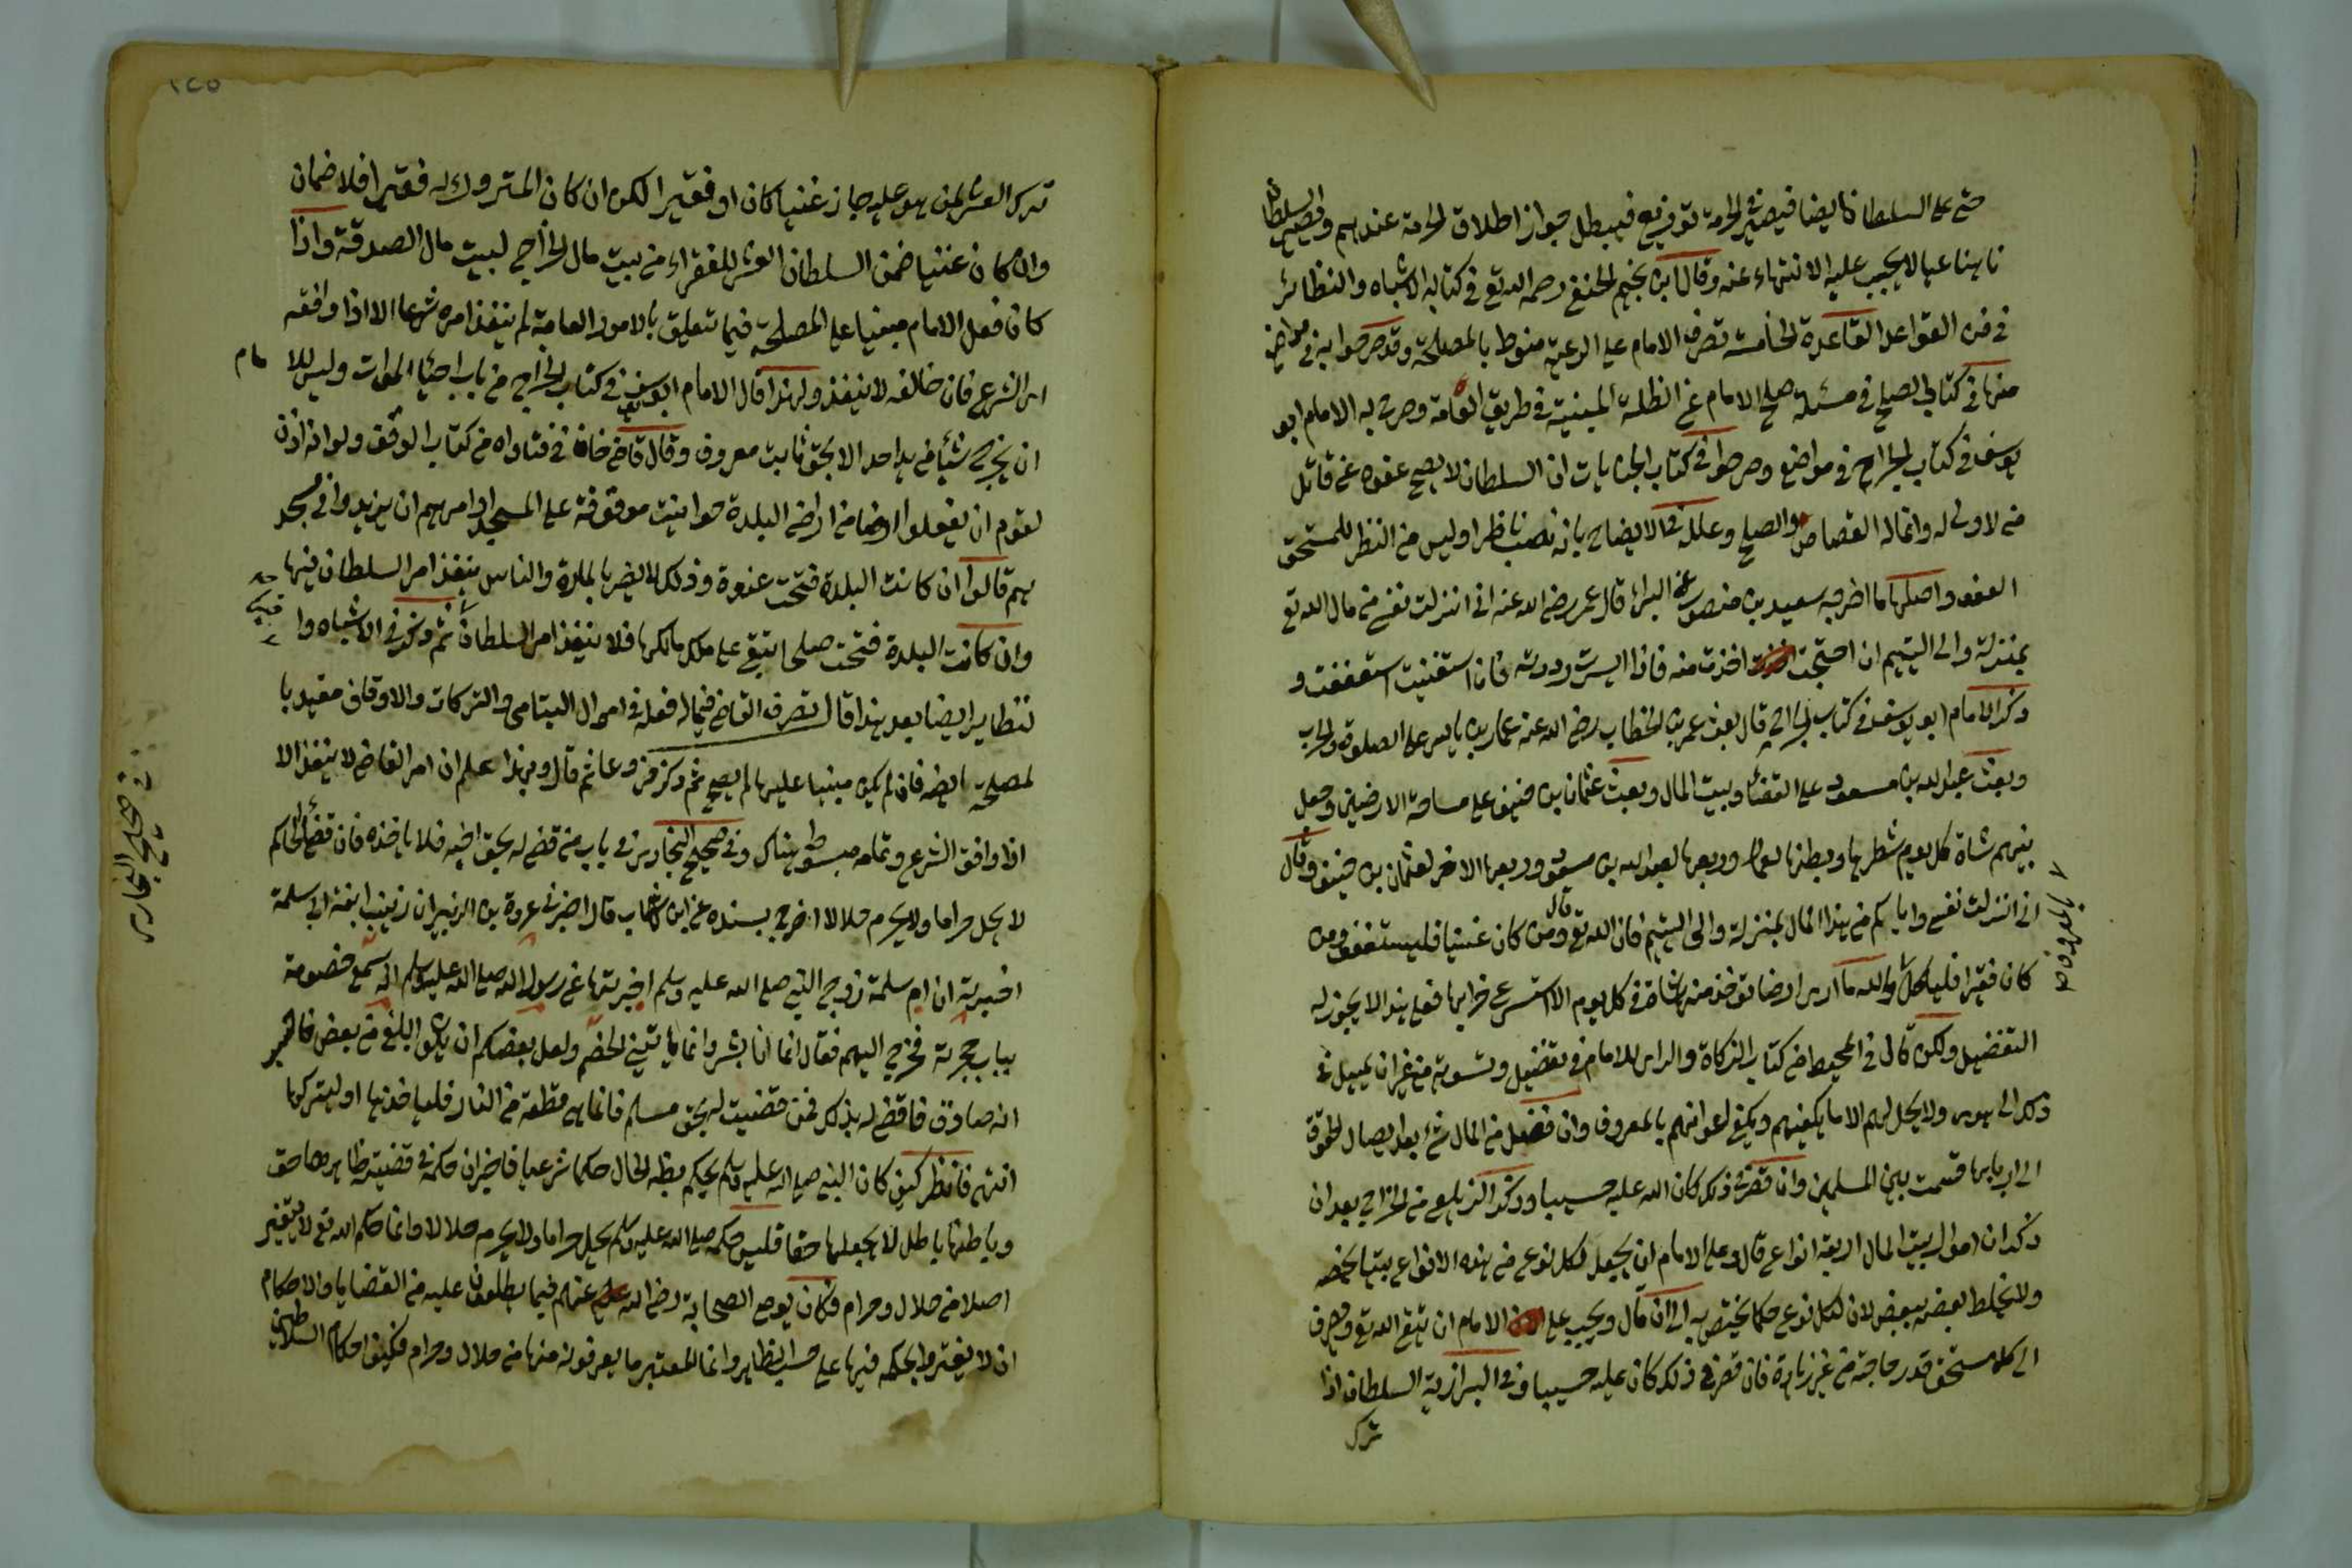 حتى على السلطان ايضا فيصير في الحرمة توزيع فيبطل جواز اطلاق الحرمة عندهم ونهي السلطان
ناهيا عما لا يجب عليه الانتهاء عنه وقال ابن نجيم الحنفي رحمه الله تع في كتابه الاشباه والنظائر
في فن القواعد القاعدة الخامسة تصرف الامام على الرعية منوط بالمصلحة وقد صرحوا به في مواضع
منها في كتاب الصلح في مسئلة صلح الامام عن الظلة المبنية في طريق العامة وصرح به الامام ابو
يوسف في كتاب الخراج في مواضع وصرحوا في كتاب الجنايات ان السلطان لا يصح عفوه عن قاتل
من لا ولي له وانما له القصاص والصلح وعلله في الايضاح بانه نصب ناظرا وليس من النظر للمستحق
العفو واصلها ما اخرجه سعيد بن منصور عن البراء قال عمر رضي الله عنه اني انزلت نفسي من مال الله تع
بمنزلة والي اليتيم ان احتجت اخذت منه فاذا ايسرت رددته فان استغنيت استعففت و
ذكر الامام ابو يوسف في كتاب الخراج قال بعث عمر بن الخطاب رضي الله عنه عمار بن ياسر على الصلوة والحرب
وبعث عبد الله بن مسعود على القضاء وبيت المال وبعث عثمان بن حنيف على مساحة الارضين وجعل
بينهم شاة كل يوم شطرها وبطنها لعمار وربعها لعبد الله بن مسعود وربعها الاخر لعثمان بن حنيف وقال
اني انزلت نفسي واياكم من هذا المال بمنزلة والي اليتيم فان الله تع قال ومن كان غنيا فليستعفف ومن
كان فقيرا فلياكل بالمعروف والله ما ارى ارضا تؤخذ منها شاة في كل يوم الا استسرع خرابها فعلى هذا لا يجوز له
التفضيل ولكن قال في المحيط من كتاب الزكاة والراي للامام في تفضيل وتسوية من غير ان يميل في
ذلك الى هوى ولا يحل لهم الا ما يكفيهم ويكفي اعوانهم بالمعروف وان فضل من المال شئ بعد ايصال الحقوق
الى اربابها قسمت بين المسلمين وان قصر في ذلك كان الله عليه حسيبا وذكر الزيلعي من الخراج بعد ان
ذكر ان اموال بيت المال اربعة انواع قال وعلى الامام ان يجعل لكل نوع من هذه الانواع بيتا يخصه
ولا يخلط بعضه ببعض لان لكل نوع حكما يختص به الى ان قال ويجب على الامام ان يتق الله تع ويصرف
الى كل مستحق قدر حاجته من غير زيادة فان قصر في ذلك كان عليه حسيبا وفي البزازية السلطان اذا
ترك
١٤٥
ترك العشر لمن هو عليه جاز غنيا كان او فقيرا لكن ان كان المتروك له فقيرا فلا ضمان
وان كان غنيا ضمن السلطان العشر للفقراء من بيت مال الخراج لبيت مال الصدقة واذا
كان فعل الامام مبنيا على المصلحة فيما تتعلق بالامور العامة لم ينفذ امره شرعا الا اذا وافقه
امر الشرع فان خالفه لا ينفذ ولهذا قال الامام ابو يوسف في كتاب الخراج من باب احياء الموات وليس للامام
ان يخرج شيئا من يد احد الا بحق ثابت معروف وقال قاضي خان في فتاواه من كتاب الوقف ولو انه اذن
لقوم ان يجعلوا ارضا من اراضي البلدة حوانيت موقوفة على المسجد او امرهم ان يزيدوا في مسجد
هم قالوا ان كانت البلدة فتحت عنوة وذلك لا يضر بالمارة والناس ينفذ امر السلطان فيها
وان كانت البلدة فتحت صلحا تبقى على ملك مالكها فلا ينفذ امر السلطان ثم ذكر في الاشباه وا
لنظاير ايضا بعد هذا قال تصرف القاضي فيما له فعله في اموال اليتامى والتركات والاوقاف مقيد با
لمصلحة ايضا فان لم يكن مبنيا عليها لم يصح ثم ذكر فروعا ثم قال وبهذا علم ان امر القاضي لا ينفذ الا
اذا وافق الشرع وتمامه مبسوط هناك وفي صحيح البخاري في باب من قضى له بحق اخيه فلا ياخذه فان قضاء الحاكم
لا يحل حراما ولا يحرم حلالا اخرج بسنده عن ابن شهاب قال اخبرني عروة بن الزبير ان زينب ابنة ابي سلمة
اخبرته ان ام سلمة زوج النبي صلى الله عليه وسلم اخبرتها عن رسول الله صلى الله عليه وسلم انه سمع خصومة
بباب حجرته فخرج اليهم فقال انما انا بشر وانما ياتيني الخصم ولعل بعضكم ان يكون ابلغ من بعض فاحسب
انه صادق فاقضي له بذلك فمن قضيت له بحق مسلم فانما هي قطعة من النار فلياخذها او ليتركها
انتهى فانظر كيف كان النبي صلى الله عليه وسلم يحكم بظاهر الحال حكما شرعيا فاخبر ان حكمه في قضية ظاهرها حق
وباطنها باطل لا يجعلها حقا فليس حكمه صلى الله عليه وسلم يحل حراما ولا يحرم حلالا وانما حكم الله تع لا يتغير
اصلا من حلال وحرام فكان يوصي الصحابة رضي الله عنهم فيما يطلعون عليه من القضايا والاحكام
ان لا يغتروا بحكمه فيها على حسب الظاهر وانما المعتبر ما يعرفونه منها من حلال وحرام فكيف احكام السلاطين
صحيح البخاري